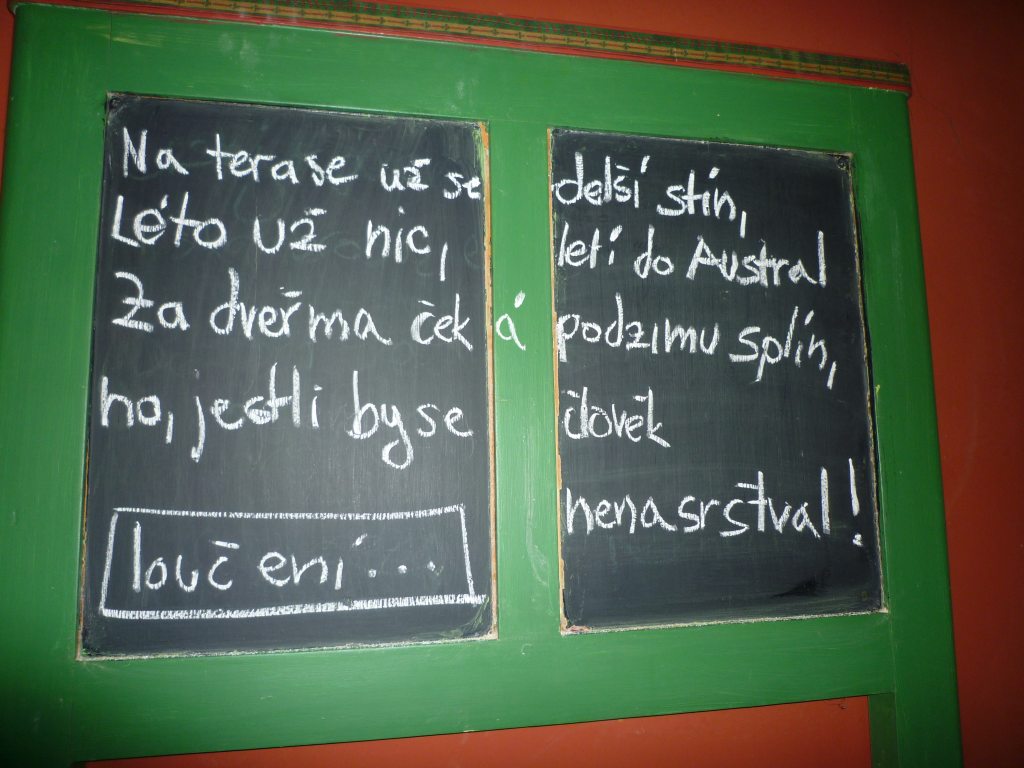 Na terase už se delší stín,
Léto už nic, letí do Austral
Za dveřma čeká podzimu splín,
no, jestli by se člověk
nenasrštval!
loučení...